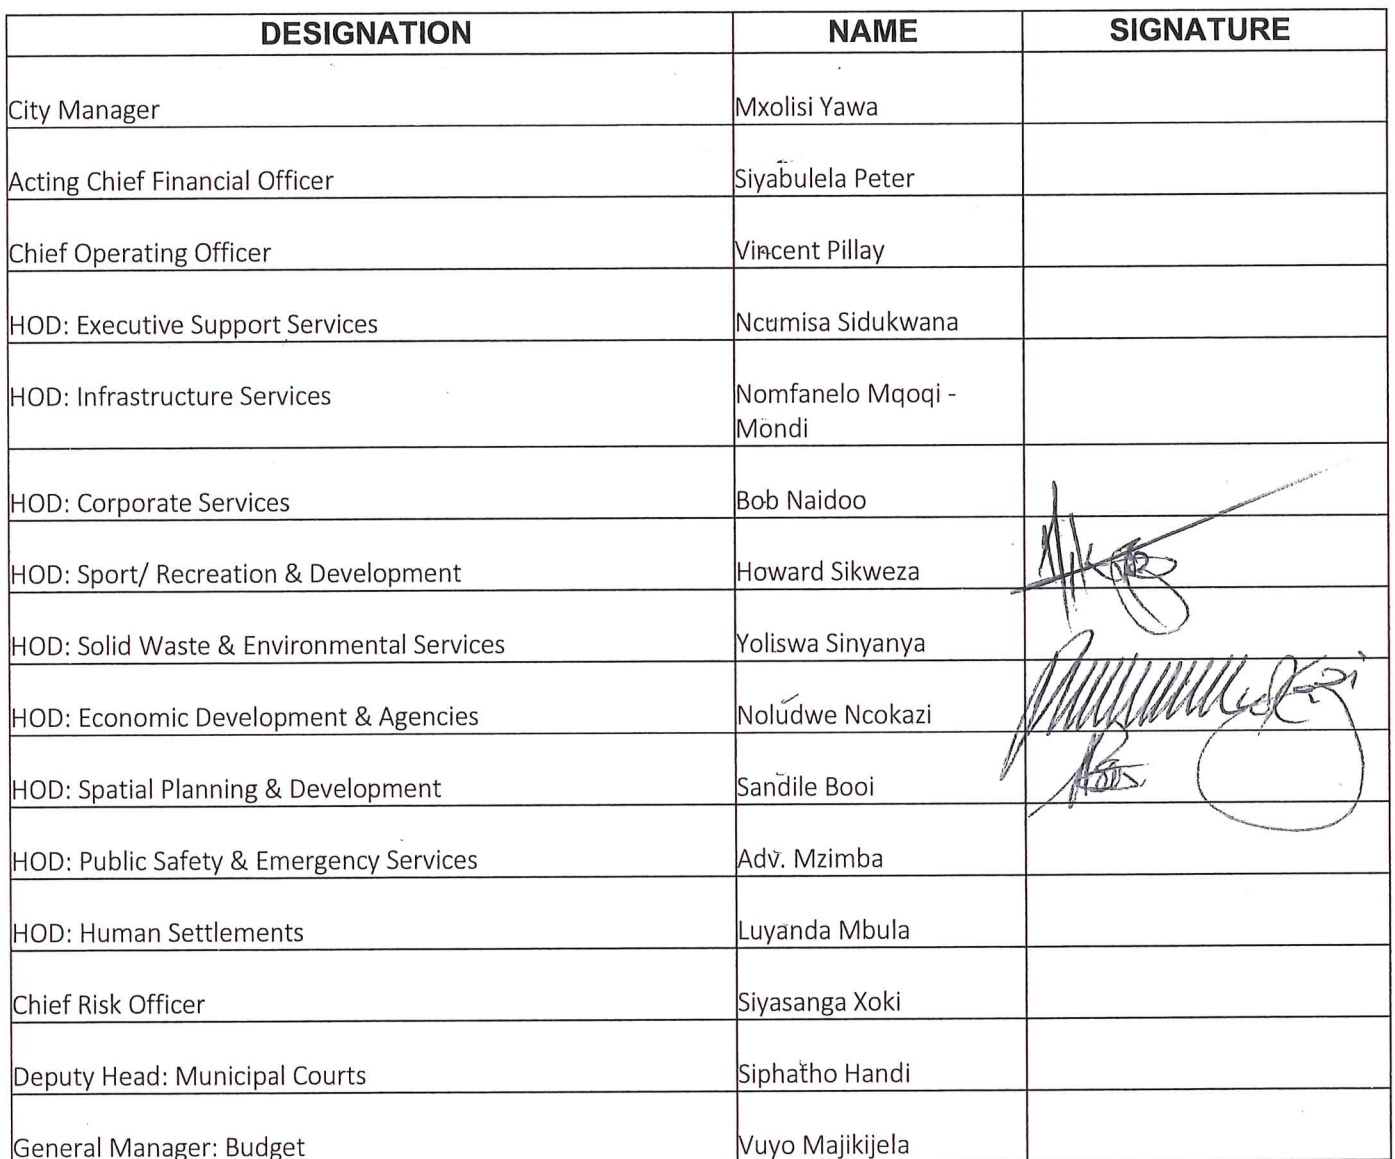 DESIGNATION NAME SIGNATURE
City Manager Mxolisi Yawa
Acting Chief Financial Officer Siyabulela Peter
Chief Operating Officer Vincent Pillay
HOD: Executive Support Services Ncumisa Sidukwana
HOD: Infrastructure Services Nomfanelo Mqoqi -
Mondi
HOD: Corporate Services Bob Naidoo
HOD: Sport/ Recreation & Development Howard Sikweza
HOD: Solid Waste & Environmental Services Yoliswa Sinyanya
HOD: Economic Development & Agencies Noludwe Ncokazi
HOD: Spatial Planning & Development Sandile Booi
HOD: Public Safety & Emergency Services Adv. Mzimba
HOD: Human Settlements Luyanda Mbula
Chief Risk Officer Siyasanga Xoki
Deputy Head: Municipal Courts Siphatho Handi
General Manager: Budget Vuyo Majikijela